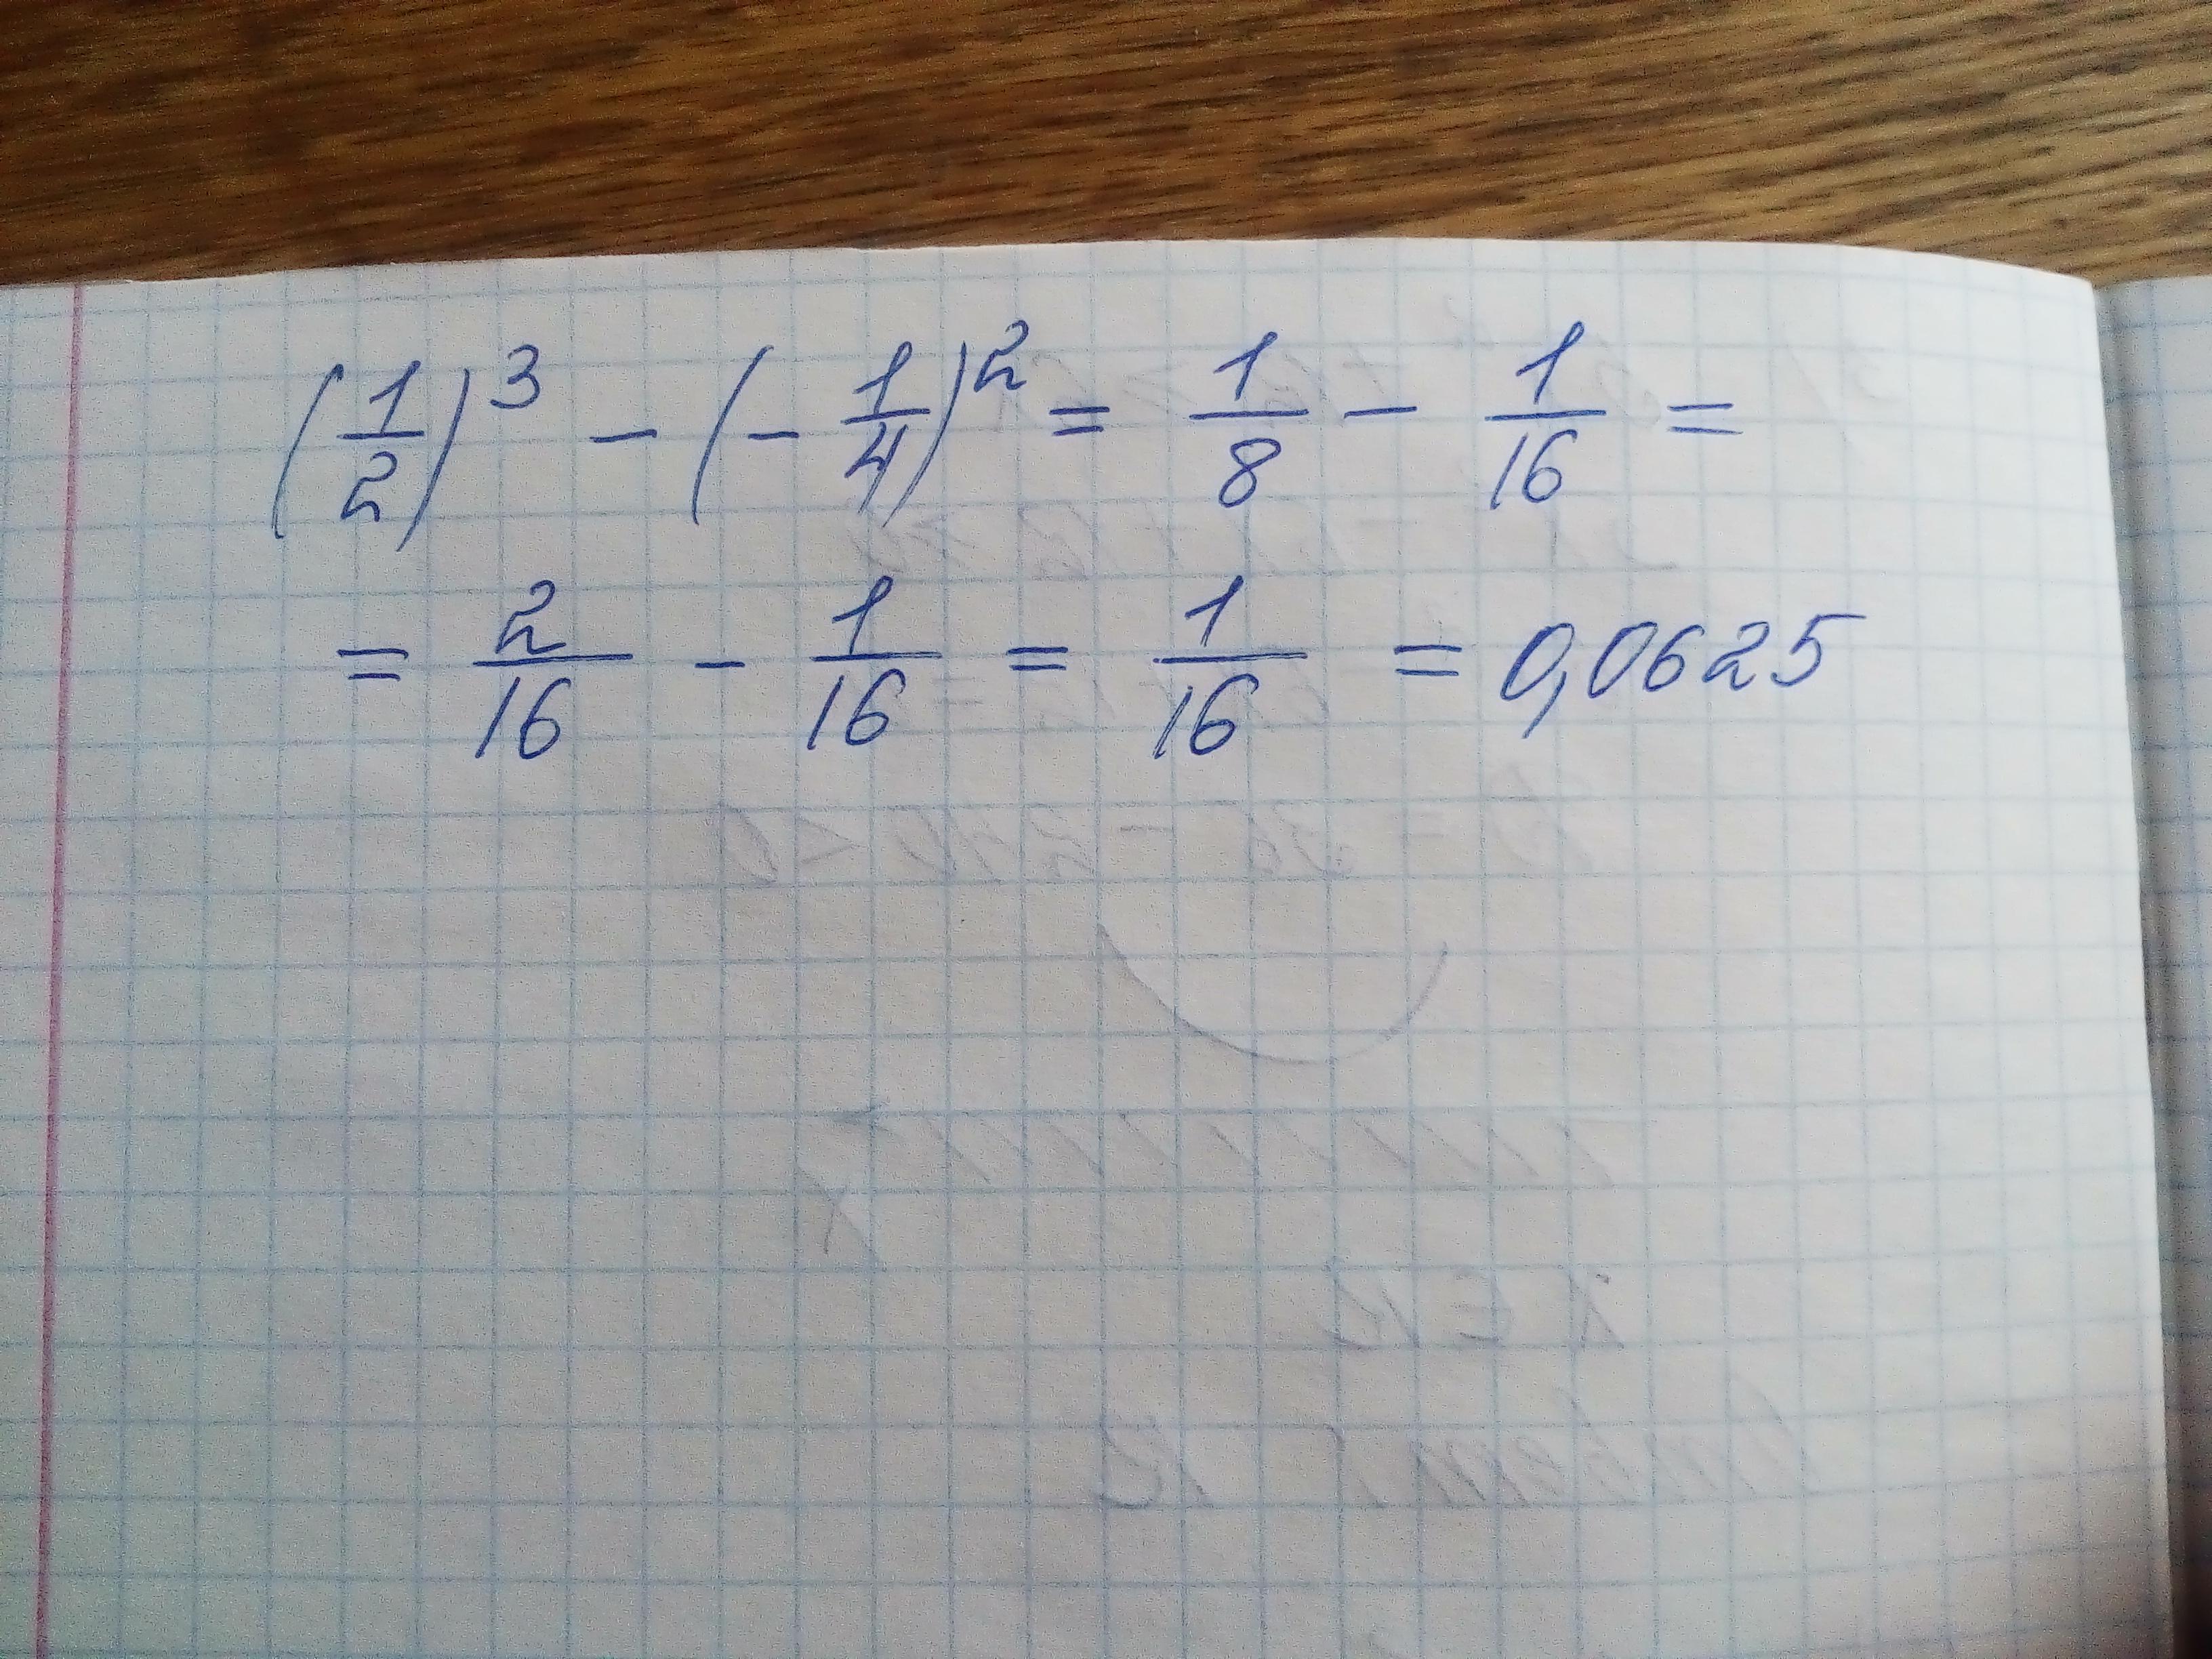 (1/2)³ - (- 1/4)² = 1/8 - 1/16 =
= 2/16 - 1/16 = 1/16 = 0,0625